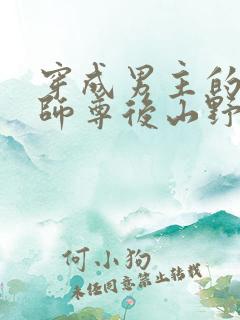 穿成男主的
師尊後山野
何小狗
未經同意禁止轉載